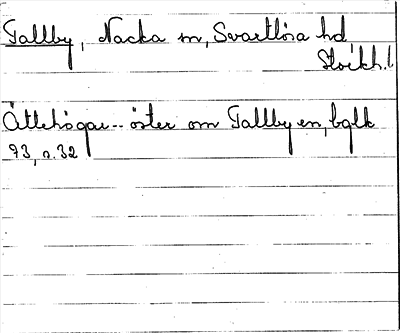 Tallby, Nacka sn, Svartlösa hd
Stockh. l.
Ättehögar - öster om Tallby en, bglk
93, s. 32